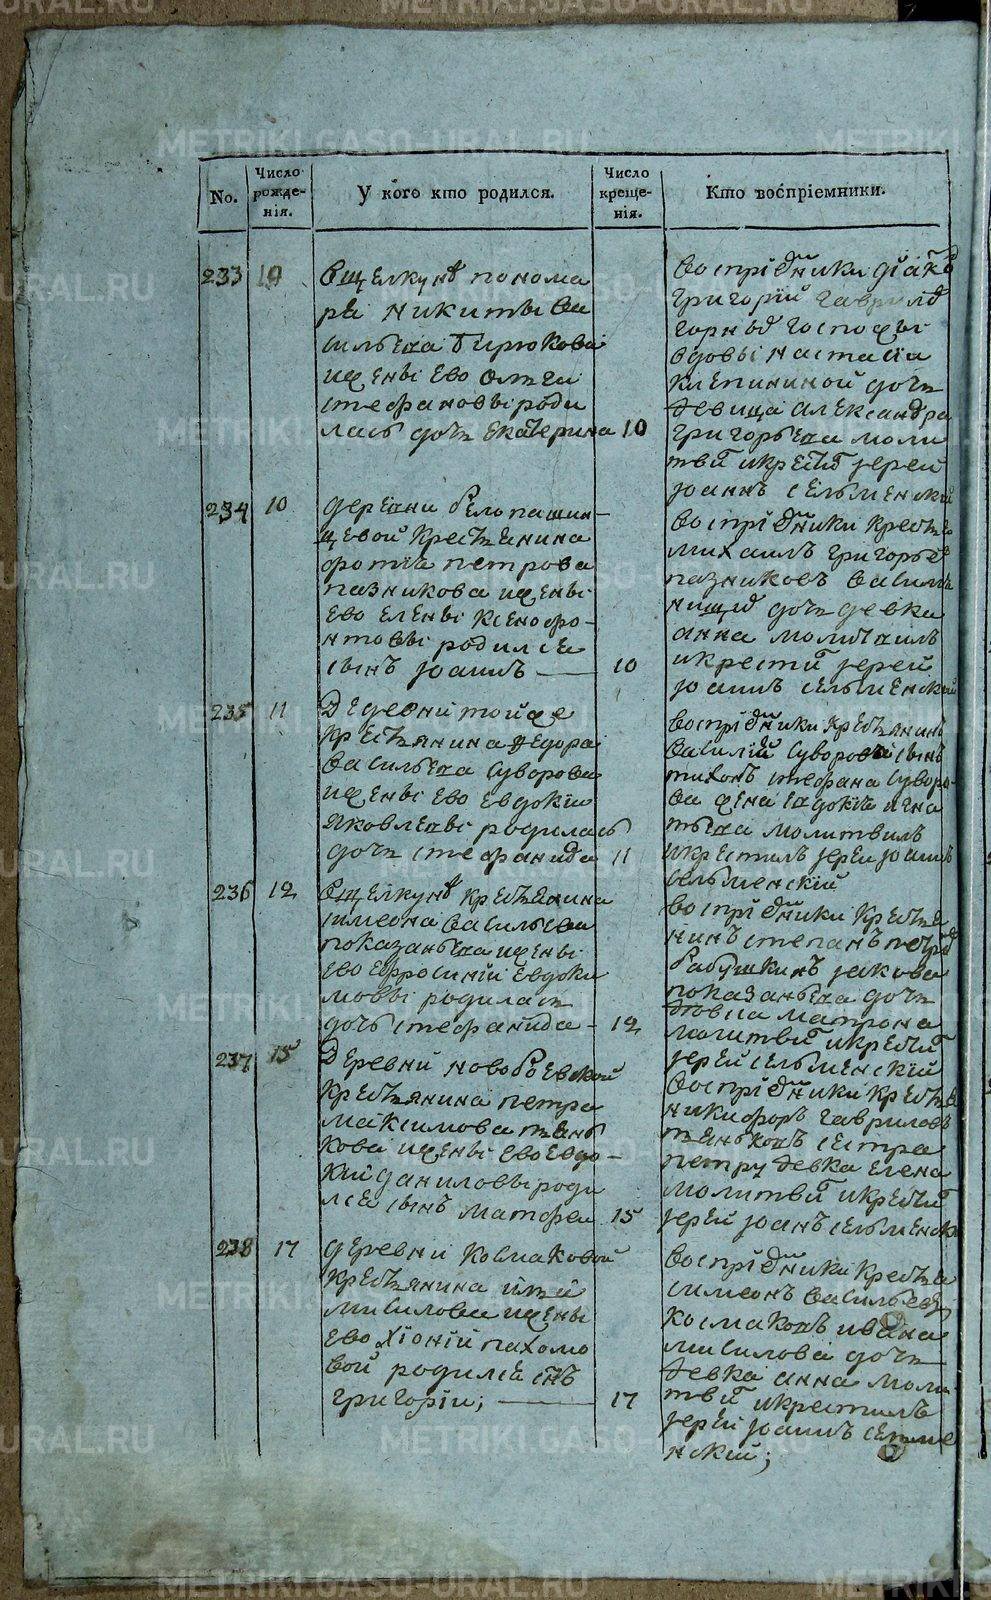 No.
Число рожденія.
У кого кто родился.
Число крещенія.
Кто воспріемники.
233 10
вщелкунѣ понома
рѧ никиты ва
сильева бирюкова
иженъı ево олги
стефановы роди
лась дочь екатерина 10
воспріемники діакѡ
григорій гаврилѡ
госпожы
вдовы настасіи
клепининой дочь
девица александра
григорьева моли
твил и крестил іерей
іоаннъ сельменскій
234 10
деревни белопашин-
цевой крестьянина
фотіѧ петрова
пазникова ижены
ево елены ксенофо-
нтовы родилсѧ
сынъ іоаннъ 10
воспріемники крестьѧ
михаилъ григорьев
пазниковъ василиѧ
дочь девка
анна молитвилъ
икрестил іерей
іоаннъ сельменскій
235 11
деревни тойже
крестьянина федора
васильева суворова
ижены ево евдокіи
яковлевы родилась
дочь стефанида 11
воспріемники крестьянинъ
василій суворова сынъ
тихонъ стефана суворо-
ва жена евдокіѧ игна
тьева молитвилъ
икрестилъ іерей іоаннъ
сельменскій
236 12
вщелкунѣ крестьянина
симеона васильева
показаньева ижены
ево ефросиній евдоки
мовы родилась
дочь стефанида 12
воспріемники крестьѧ
нинъ степанъ петров
бабушкинъ іакова
показаньева дочь
девка матрона
молитвил икрестил
іерей сельменскій
237 15
деревни новобоевской
крестьянина петра
максимова тѧнь
кова ижены ево евдо-
кіи даниловы роди
лсѧ сынъ матфей 15
воспріемники крестьѧ
никифоръ гавриловъ
тѧньковъ сестра
петру девка елена
молитвил икрестил
іерей іоанъ сельменск
238 17
деревни космаковой
крестьянина
ижены
ево хіоній пахомо
вой родилсѧ снъ
григоріи; 17
воспріемники крестьѧ
симеонъ васильев
космаковъ ивана
дочь
девка анна моли-
твил икрестилъ
іерей іоаннъ сельме
нскій;
METRIKI.GASO-URAL.RU